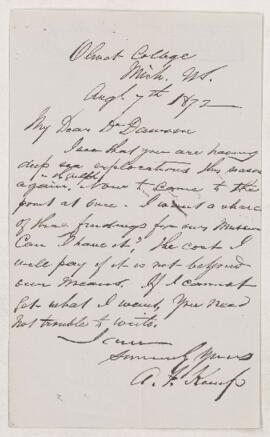 Olivet College
Mich. U.S.
Augt 7th 1872
My Dear Dr Dawson
I saw that you are having
deep sea explorations this season
again. Now to come to the
point at once. I want a share
of those findings for our Museum
Can I have it? The cost I
will pay if it is not beyond
our means. If I cannot
get what I want, You need
not trouble to write.
I am
Sincerely Yours
A. F.